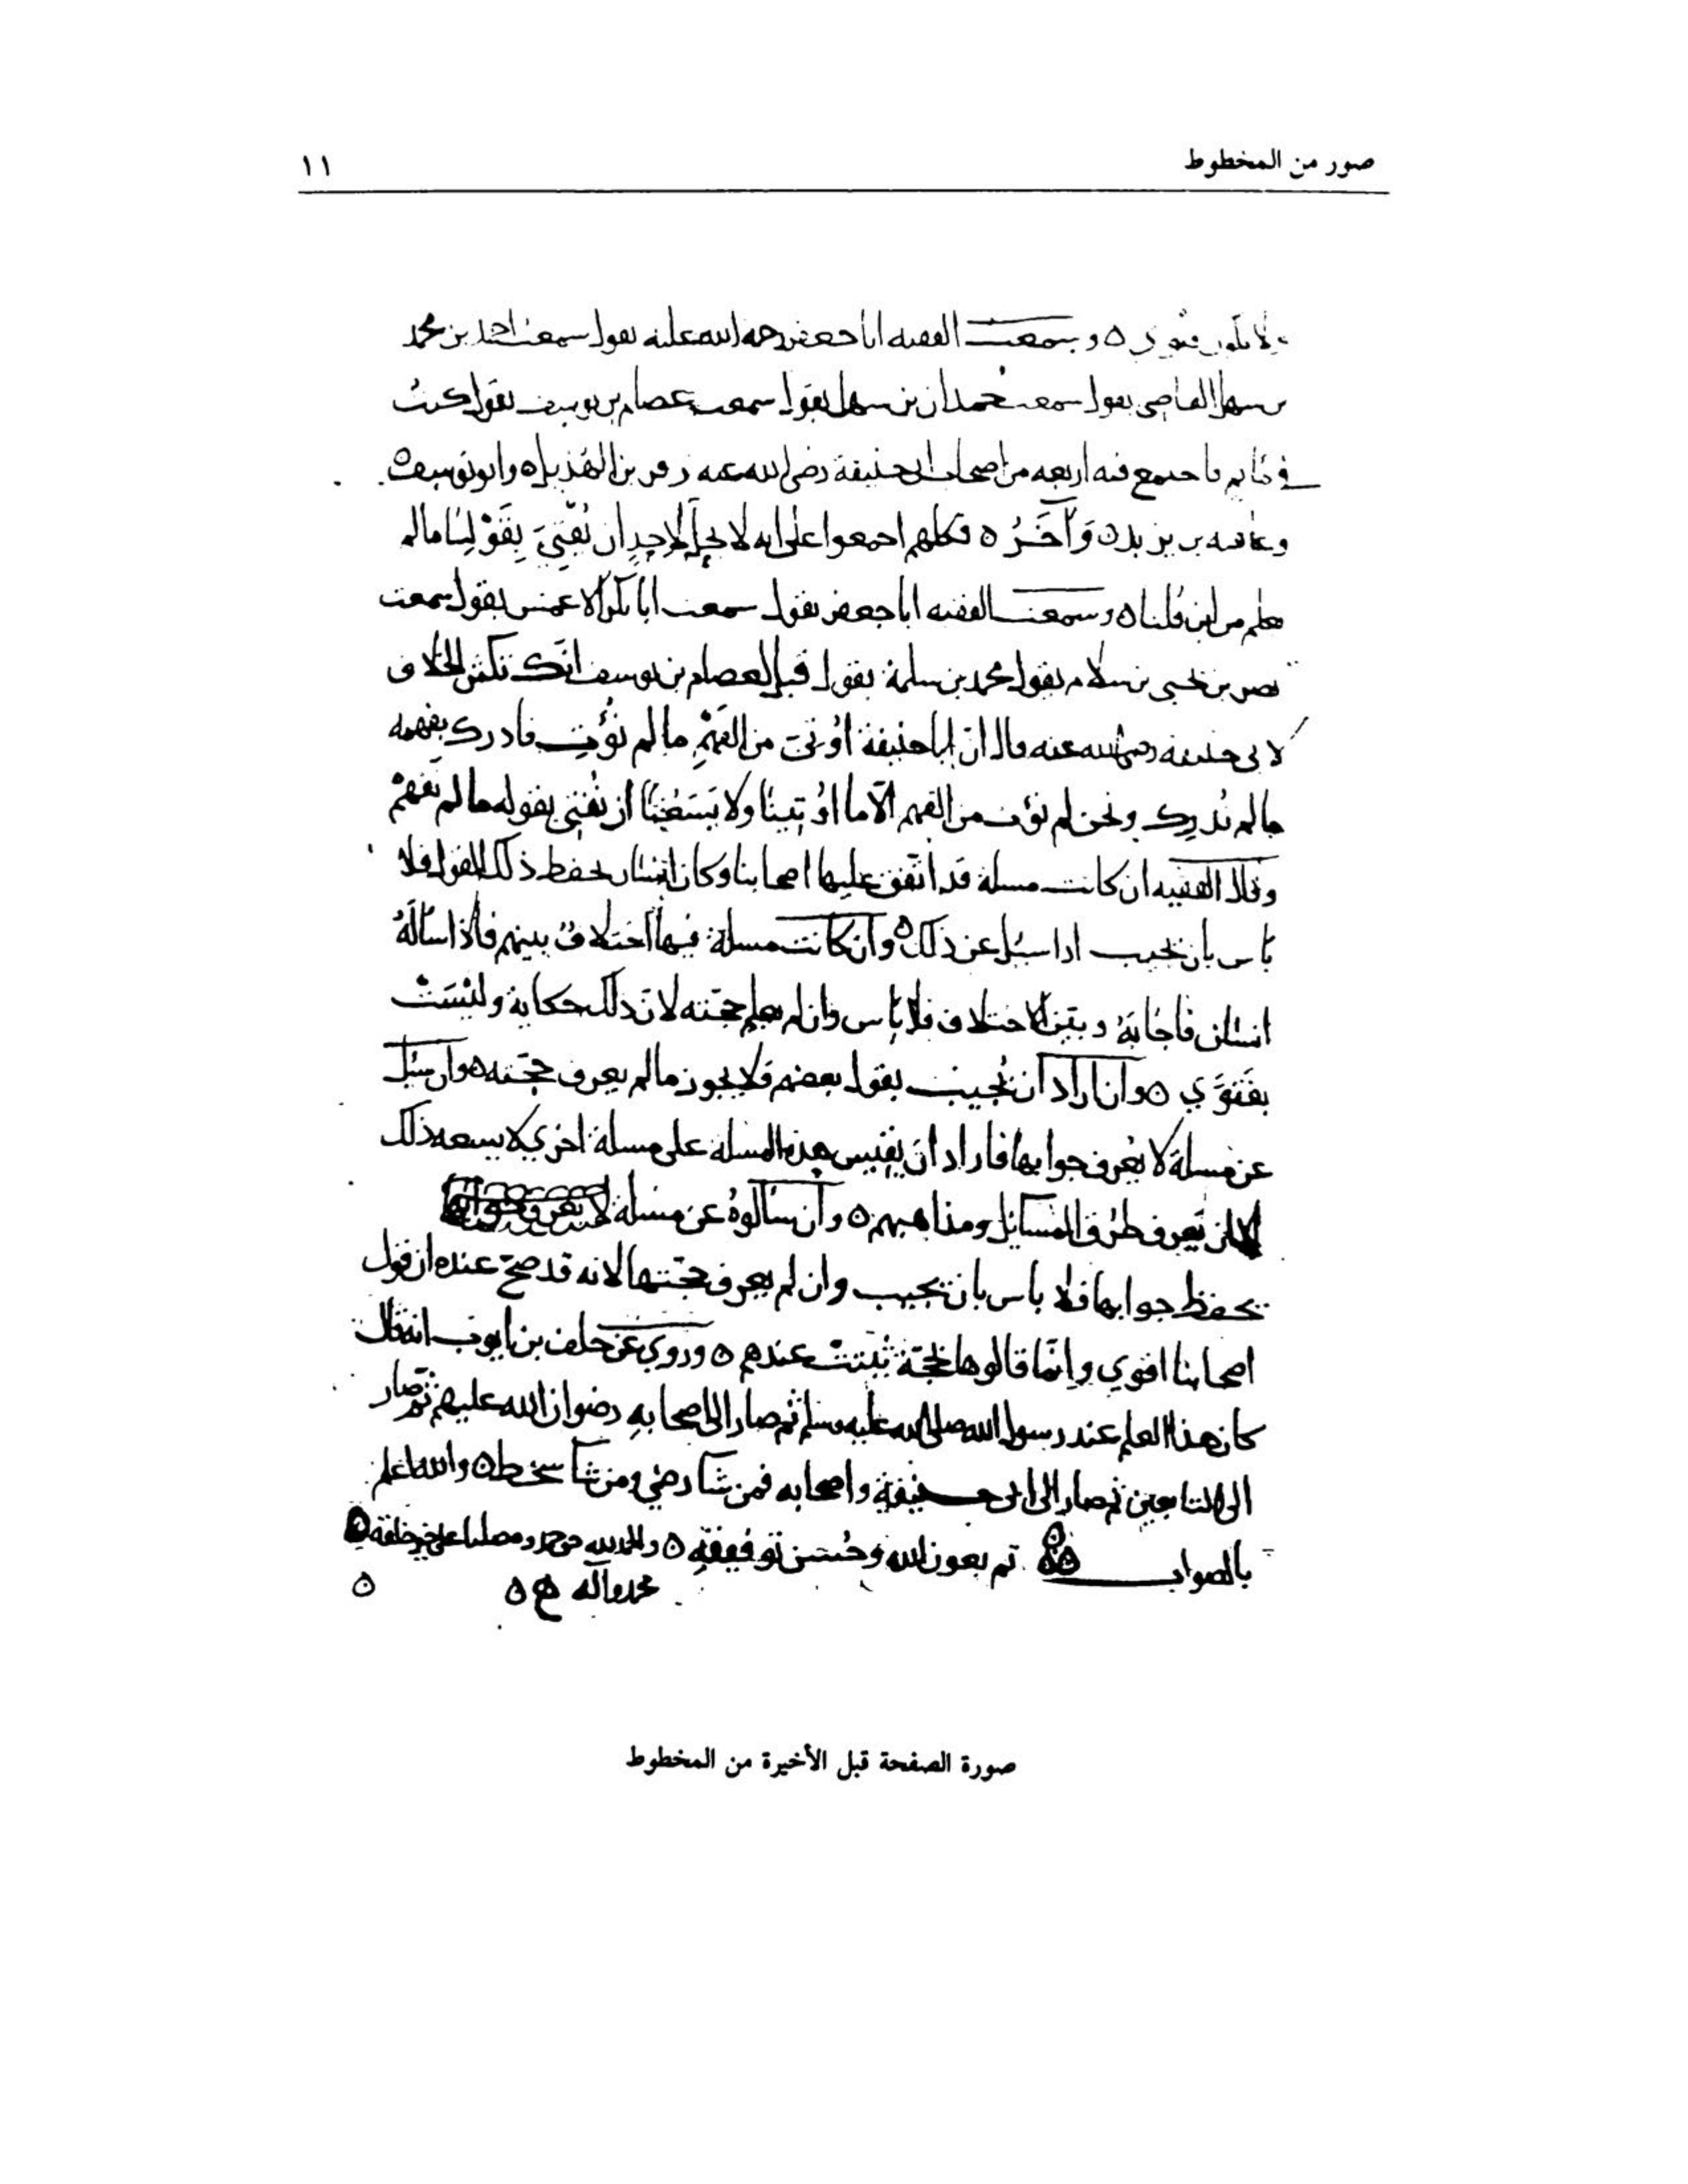 صور من المخطوط
١١
ولا تكون فتوى ه وسمعت الفقيه ابا جعفر رحمه الله عليه يقول سمعت احمد بن محمد
بن سهل القاضي يقول سمعت حمدان بن سهل يقول سمعت عصام بن يوسف يقول كنت
في ماتم فاجتمع فيه اربعه من اصحاب ابي حنيفة رضي الله عنه زفر بن الهذيل ه وابو يوسف ه
وعافيه بن يزيد ه وَآخَرُ ه فكلهم اجمعوا على انه لا يحل لاحدٍ ان يُفْتِيَ بِقَوْلِنَا ما لم
يعلم من اين قلنا ه وسمعت الفقيه ابا جعفر يقول سمعت ابا بكر الاعمش يقول سمعت
نصر بن يحيى بن سلام يقول محمد بن سلمة يقول قيل لعصام بن يوسف انّك تكثر الخلاف
لابي حنيفه رضي الله عنه قال انّ ابا حنيفة اوُتِيَ من الفَهْمِ ما لم نُؤْتِ فادرك بفهمه
ما لم نُدرِك ونحن لم نؤت من الفهم الّا ما اوُتينَا ولا يَسَعُنَا ان نُفتي بقوله ما لم نَفْهَمْ
وقال الفقيه ان كانت مسلة قد اتّفق عليها اصحابنا وكان انسان يحفظ ذلك القول فلا
باس بان يجيب اذا سئل عن ذلك ه وان كانت مسلة فيها اختلافٌ بينهم فاذا سالَهُ
انسان فاجابَهُ وبيّن الاختلاف فلا باس وان لم يعلم حجّته لانّ ذلك حكاية وليْسَتْ
بفَتْوَى ه وان اراد ان يُجيب بقول بعضهم فلا يجوز ما لم يعرف حجّته ه وان سئل
عن مسلة لا يعرف جوابها فاراد ان يقيس هذه المسلة على مسلة اخرى لا يسعه ذلك
الا ان يعرف طرق المسائل ومذاهبهم ه وان سالوهُ عن مسلة
يحفظ جوابها فلا باس بان يجيب وان لم يعرف حجّتها لانه قد صحّ عنده ان قول
اصحابنا اقوي وانّما قالوها لحجّة ثبتت عندهم ه وروي عن خلف بن ايوب انه قال
كان هذا العلم عند رسول الله صلى الله عليه وسلم ثم صار الى اصحابهِ رضوان الله عليهم ثم صار
الى التابعين ثم صار الى ابي حنيفة واصحابه فمن شا رضي ومن شا سخط ه والله اعلم
بالصواب تم بعون الله وحُسْن توفيقهِ ه والحمد لله ومصليا على خير خلقه
محمد وآله
صورة الصفحة قبل الأخيرة من المخطوط